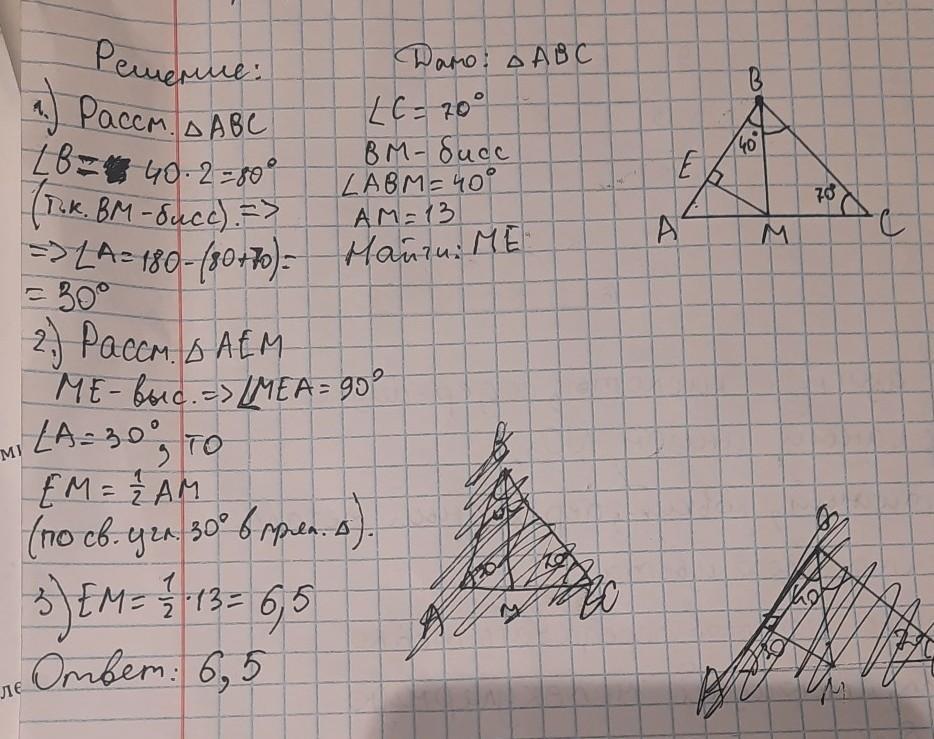 Решение:
1.) Рассм. △ABC
∠B= 40·2=80°
(т.к. BM-бисс). =>
=> ∠A=180-(80+70)=
= 30°
2.) Рассм. △ AEM
ME- выс. => ∠MEA = 90°
∠A=30°, то
EM = 1/2 AM
(по св. угл. 30° в прям. △).
3.) EM = 1/2 · 13 = 6,5
Ответ: 6,5
Дано: △ABC
∠C = 70°
BM- бисс
∠ABM=40°
AM=13
Найти: ME
B
40°
E
70°
A
M
C